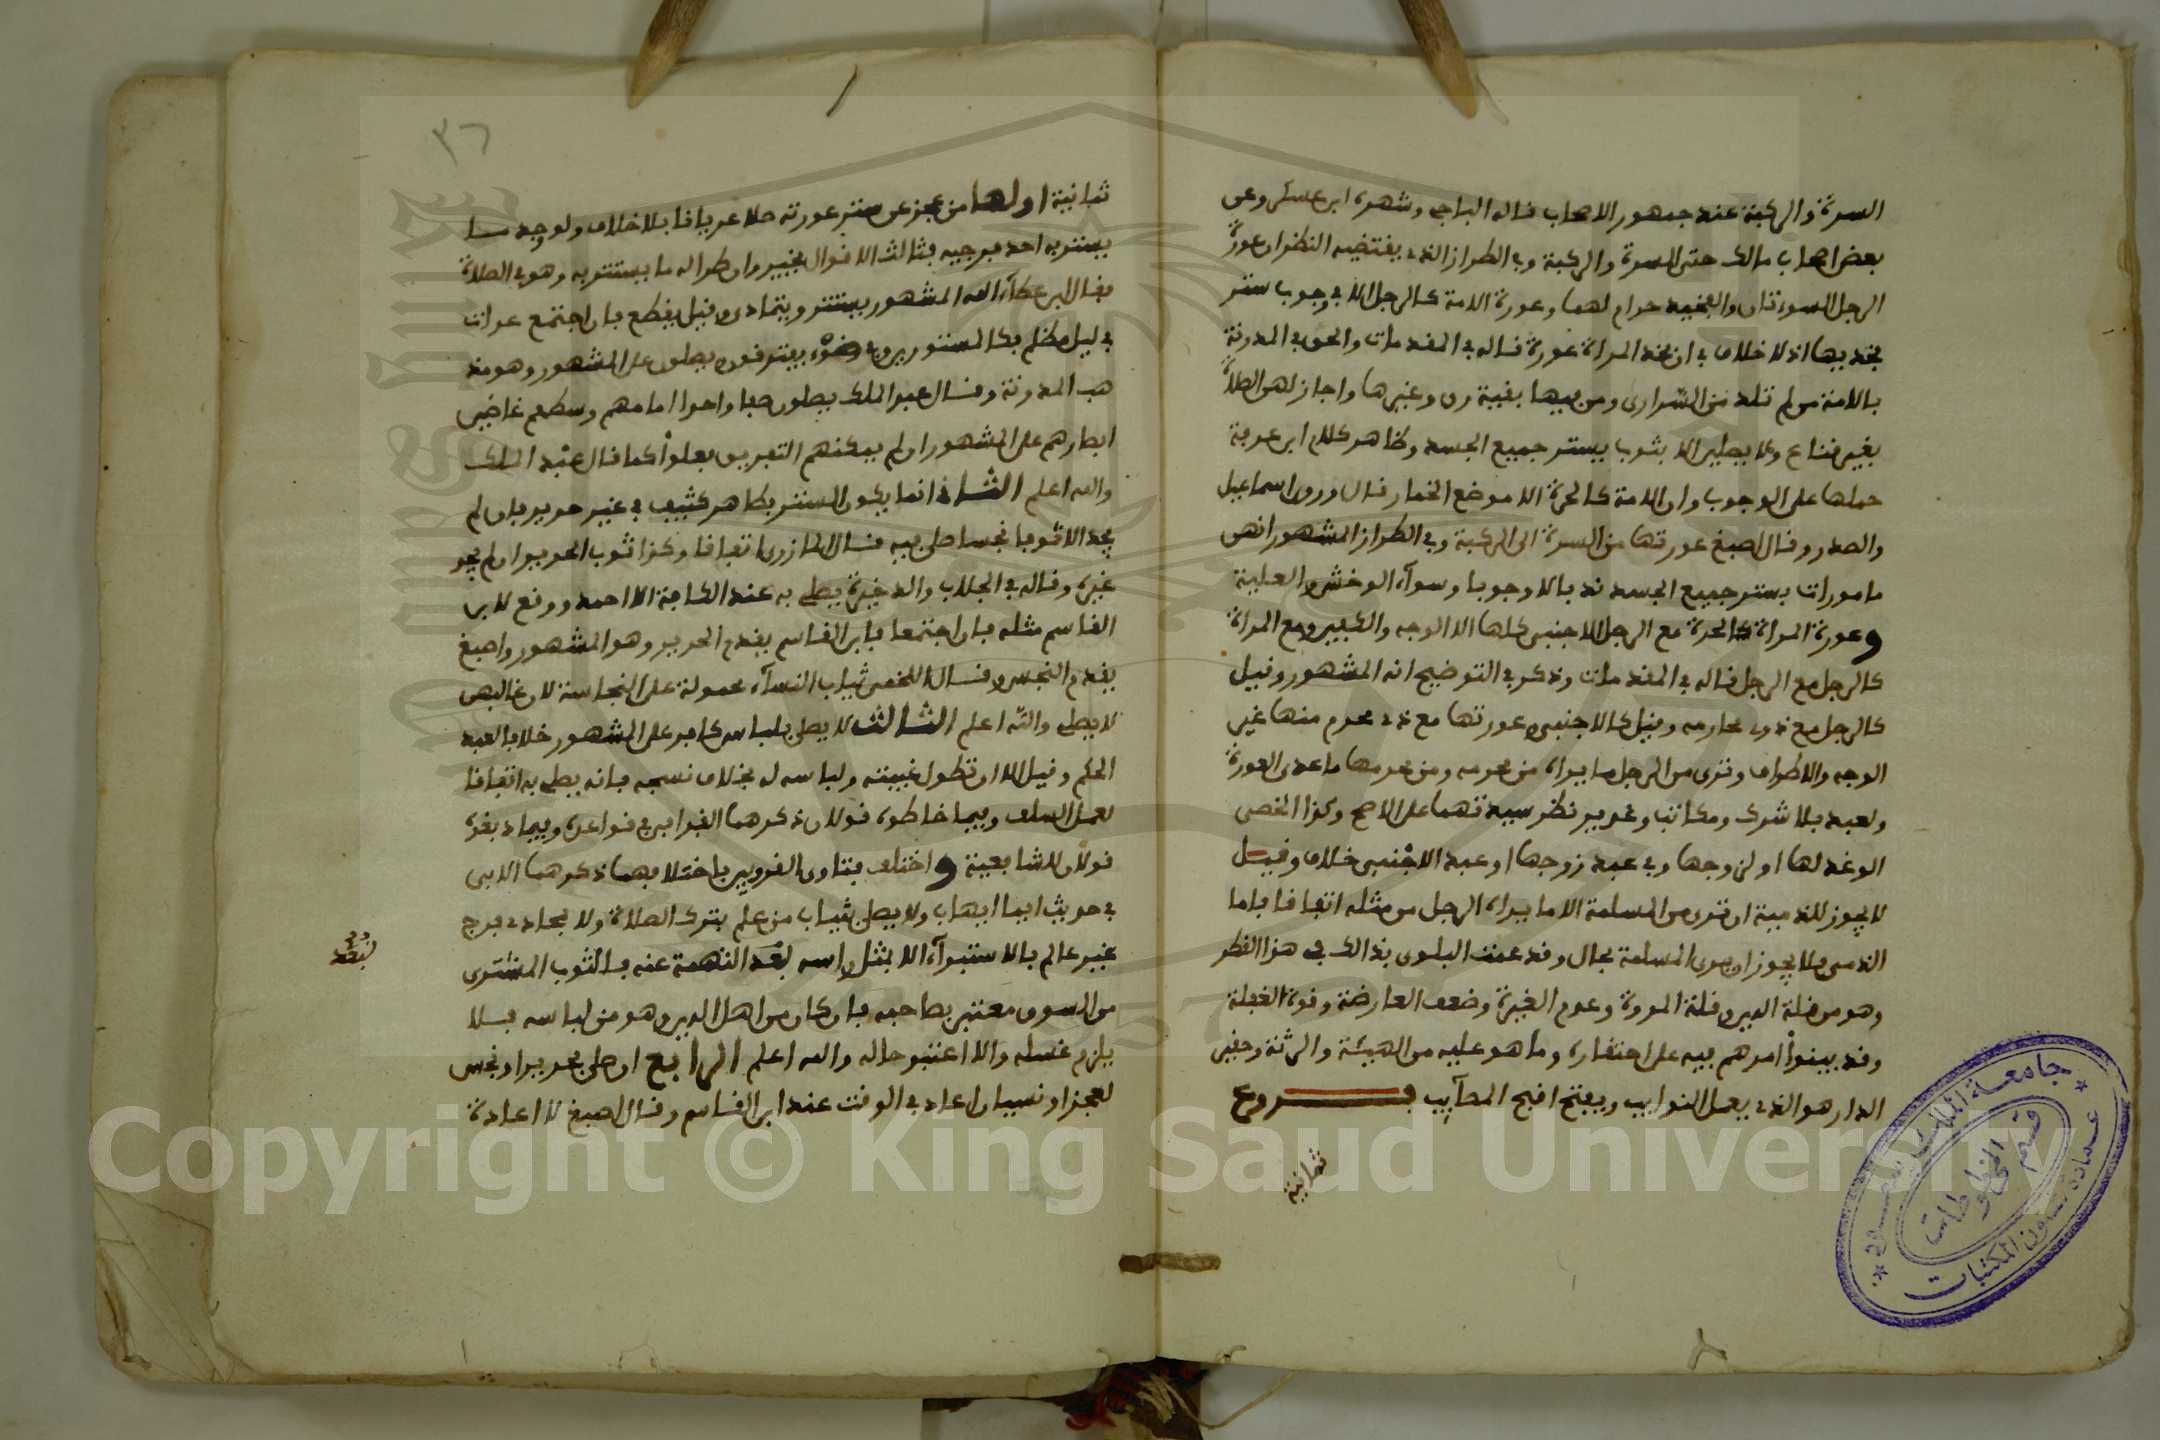 السرة والركبة عند جمهور الاصحاب قاله الباجي وشهره ابن عسكر وعن
بعض اصحاب مالك حتى السرة والركبة وفي الطراز الذي يقتضيه النظران عورة
الرجل السوءتان والفخيذ حرام لهما وعورة الامة كالرجل الا في وجوب ستر
فخذيها اذ لا خلاف في ان فخذ المراة عورة قاله في المقدمات والحق في المدونة
بالامة من لم تلد من السراري ومن فيها بقية رق وغيرها واجاز لهن الصلاة
بغير قناع ولا يصلين الا بثوب يستر جميع الجسد وظاهر كلام ابن عرفة
حملها على الوجوب وان الامة كالحرة الا موضع الخمار قال وروى اسماعيل
والصدر وقال اصبغ عورتها من السرة الى الركبة وفي الطراز المشهور انهن
مامورات بستر جميع الجسد ندبا لا وجوبا وسواء الوخش والعلية
وعورة المراة الحرة مع الرجل الاجنبي كلها الا الوجه والكفين ومع المراة
كالرجل مع الرجل قاله في المقدمات وذكر في التوضيح انه المشهور وقيل
كالرجل مع ذوي محارمه وقيل كالاجنبي وعورتها مع ذي محرم منها غير
الوجه والاطراف وترى من الرجل ما يراه من محرمه ومن محرمها ما عدى العورة
ولعبد بلا شرك ومكاتب وغدين نظر سيدتهما على الاصح وكذا الخصي
الوغد لها او لزوجها وفي عبد زوجها او عبد الاجنبي خلاف وقيل
لا يجوز للذمية ان ترى من المسلمة الا ما يراه الرجل من مثله اتفاقا فاما
الذمي فلا يجوز ان يرى المسلمة بحال وقد عمت البلوى بذالك في هذا القطر
وهو من قلة الدين وقلة المروة وعدم الغيرة وضعف العارضة وقوة الغفلة
وقد بينوا امرهم فيه على احتقاره وما هو عليه من الهيئة والرثة وحفير
الدار هو الذي يعمل النوايب ويفتح اقبح المصايب فـــروع
ثمانية
٣٦
ثمانية اولها من عجز عن ستر عورته صلا عريانا بلا خلاف ولو وجد ما
يستر به احد فرجيه فثالث الاقوال يخير وان طرا له ما يستتر به وهو في الصلاة
فقال ابن عطاء الله المشهور يستتر ويتمادى وقيل يقطع فان اجتمع عرات
في ليل مظلم فكالمستورين وفي ضوء يفترقون ويصلون على المشهور وهو مذ
هب المدونة وقال عبد الملك يصلون صفا واحدا امامهم وسطهم غاضين
ابصارهم على المشهور ان لم يمكنهم التفريق فعلوا كما قال عبد الملك
والله اعلم الثاني انما يكون الستر بطاهر كثيف في غير حرير فان لم
يجد الا ثوبا نجسا صلى فيه قال المازري اتفاقا وكذا ثوب الحرير ان لم يجد
غيره وقاله في الجلاب والذخيرة يصلي به عند الكافة الا احمد ووقع لابن
القاسم مثله فان اجتمعا فابن القاسم يقدم الحرير وهو المشهور واصبغ
يقدم النجس وقال اللخمي ثياب النساء محمولة على النجاسة لان غالبهن
لا يصلي والله اعلم الثالث لا يصلى بلباس كافر على المشهور خلافا لعبد
الحكم وقيل الا ان تطول غيبته ولباسه له بخلاف نسجه فانه يصلى به اتفاقا
لعمل السلف وفيما خاطوه قولان ذكرهما القرافي في قواعده وفيما دبغوه
قولان للشافعية واختلف فتاوى القرويين باختلافهما ذكرهما الابي
في حديث ايما ايهاب ولا يصلى بثياب من علم بترك الصلاة ولا بمحاذى فرج
غير عالم بالاستبراء الا بمثل راسه لبعد التهمة عنه فالثوب المشترى
من السوق معتبر بصاحبه فان كان من اهل الدين وهو من لباسه فلا
يلزم غسله والا اعتبر حاله والله اعلم الرابع ان صلى بحرير او نجس
لعجز او نسيان اعاد في الوقت عند ابن القاسم وقال اصبغ لا اعادة
لبعد
جامعة الملك سعود
قسم المخطوطات
عمادة شئون المكتبات
Copyright © King Saud University